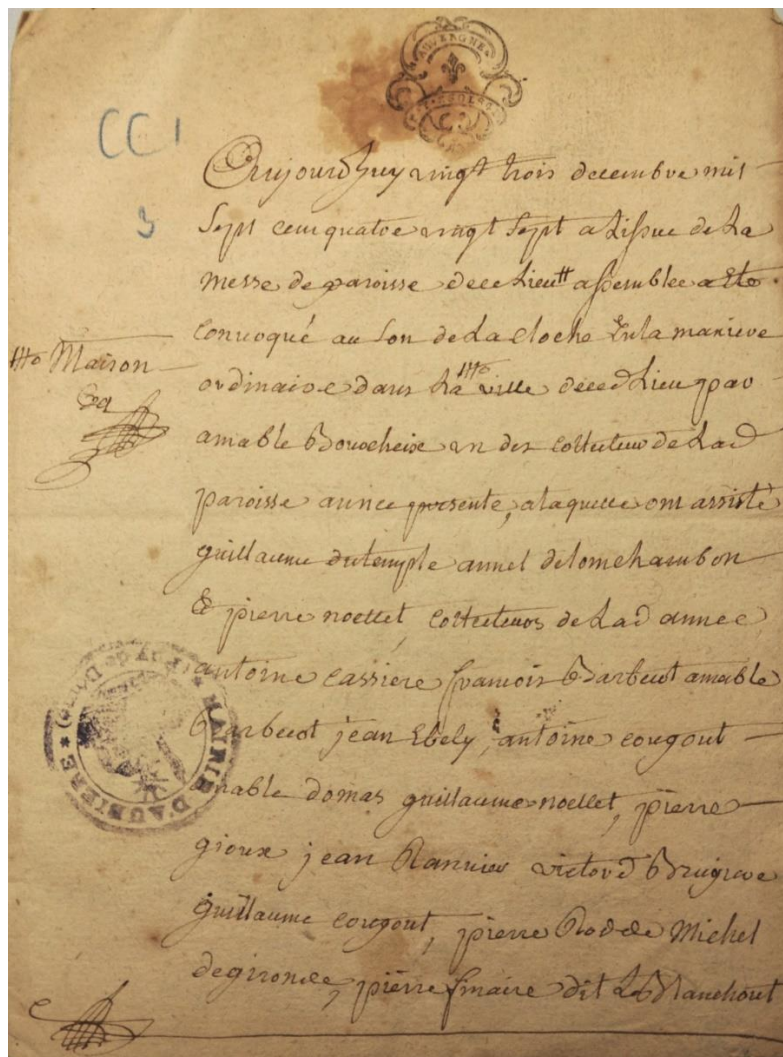 AUVERGNE
CC 1
3
Aujourd'huy vingt trois decembre mil
sept cent quatre vingt sept a lissue de la
messe de paroisse dece lieu assemblée a ete
convoqué au son de la cloche en la maniere
tto Maison
ordinaire dans la ville deced lieu par
amable Bourcheix un des collecteurs de lad
paroisse annee presente, a laquelle ont assisté
guillaume dutemple annet delomchambon
& pierre noellet, collecteurs de lad annee
antoine cassiere francois Barbecot amable
Barbecot jean Ebely, antoine cougout
amable domas guillaume noellet, pierre
gioux jean Rannier victor Brugiere
guillaume cougout, pierre Rodde Michel
degironde, pierre finaire dit Le Blanchout
MAIRIE D'AUBIERE * (PUY-DE-DÔME) *